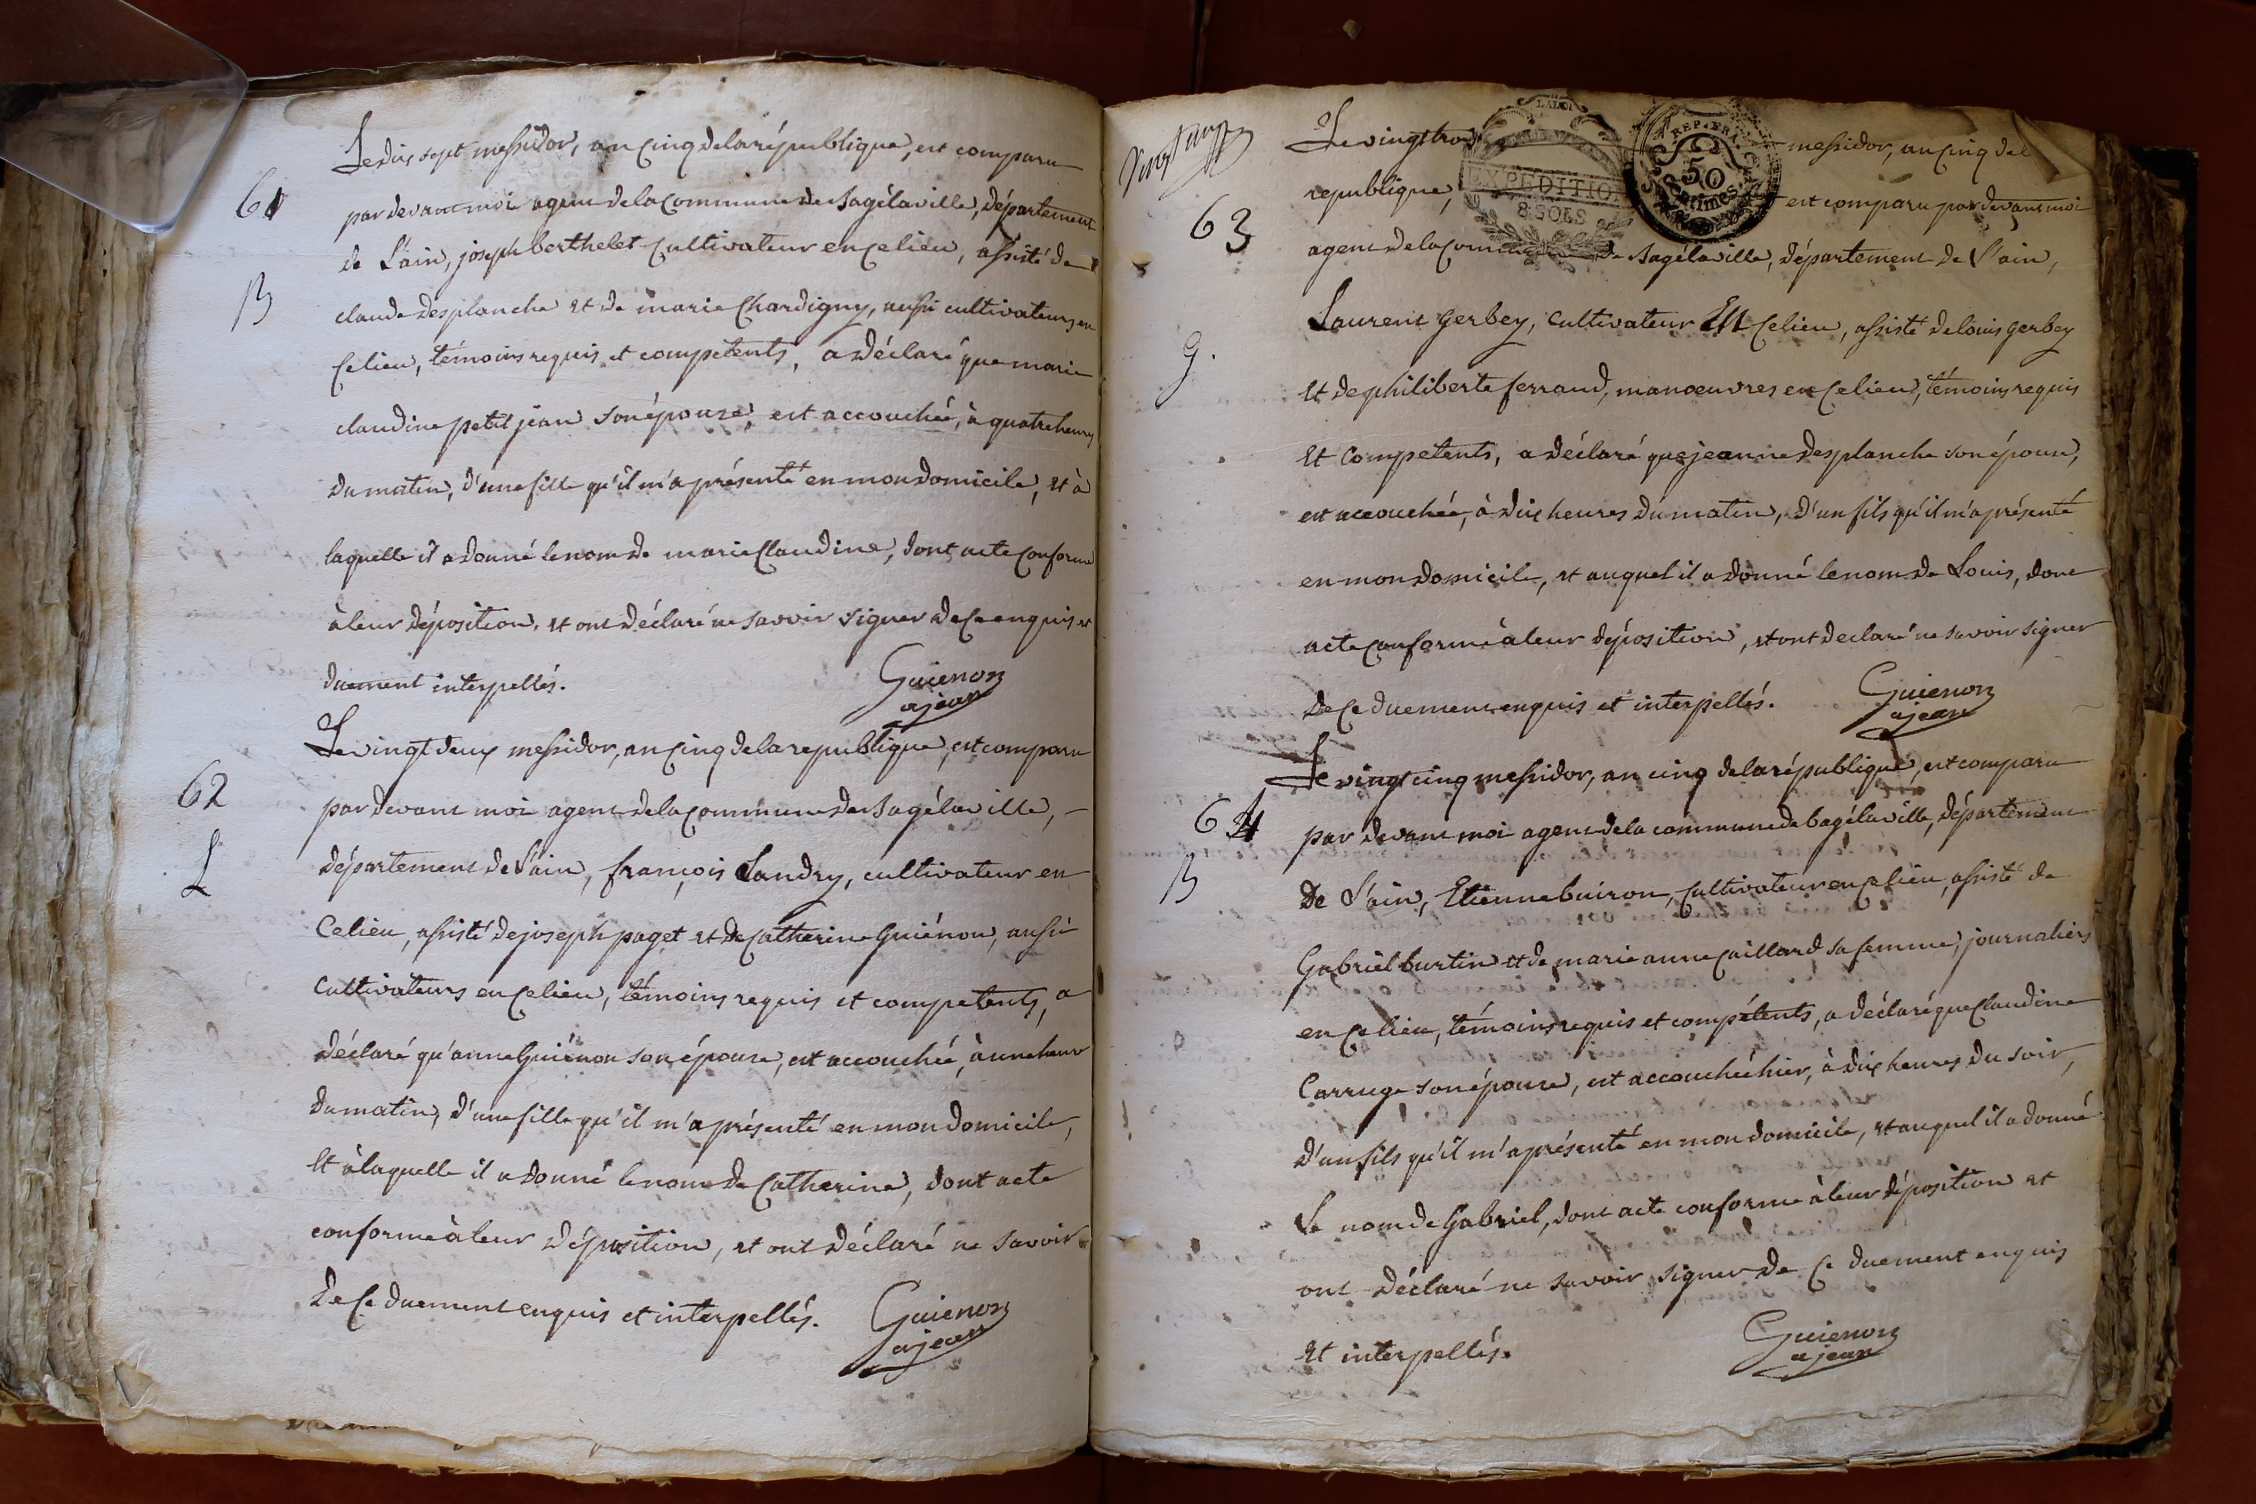 Le dix sept messidor, an cinq de la république, est comparu
61
par devant moi agent de la commune de Bagélaville, département
de L'ain, joseph berthelet cultivateur en ce lieu, assisté de
B
claude desplanche et de marie Chardigny, aussi cultivateurs en
ce lieu, témoins requis et competents, a déclaré que marie
claudine petit jean son épouse, est accouchée, à quatre heures
du matin, d'une fille qu'il m'a présenté en mon domicile, et à
laquelle il a donné le nom de marie Claudine, dont acte conforme
à leur déposition, et ont déclaré ne savoir signer de ce enquis et
duement interpellés.
Guienon
ajean
Le vingt deux messidor, an cinq de la republique, est comparu
62
par devant moi agent de la commune de Bagélaville,
L
département de L'ain, françois Landry, cultivateur en
Celieu, assisté de joseph paget et de Catherine Guiénon, aussi
Cultivateurs en ce lieu, témoins requis et competents, a
déclaré qu'anne Guiénon son épouse, est accouchée, à une heure
du matin, d'une fille qu'il m'a présenté en mon domicile,
Et à laquelle il a donné le nom de Catherine, dont acte
conforme à leur déposition, et ont déclaré ne savoir
De Ce duement enquis et interpellés.
Guienon
ajean
Le vingt trois messidor, an cinq de l
LA LOI
EXPEDITION
8 SOLS
REP. FRA.
50
Centimes
63
republique, est comparu par devant moi
agent de la commune de Bagélaville, département de L'ain,
g.
Laurent gerbey, cultivateur En Celieu, assisté de louis gerbey
Et de philiberte ferrand, manoeuvres en Celieu, témoins requis
Et competents, a déclaré que jeanne desplanche son épouse,
est accouchée, à dix heures du matin, d'un fils qu'il m'a présenté
en mon domicile, et auquel il a donné le nom de Louis, dont
acte conforme à leur déposition, et ont declaré ne savoir signer
de Ce duement enquis et interpellés.
Guienon
ajean
Le vingt cinq messidor, an cinq de la république, est comparu
64
par devant moi agent de la commune de bagélaville, département
B
De L'ain, Etienne buiron, Cultivateur en Celieu, assisté de
Gabriel burtin et de marie anne Caillard sa femme, journaliers
en Celieu, témoins requis et compétents, a déclaré que Claudine
Carruge son épouse, est accouchée hier, à dix heures du soir,
D'un fils qu'il m'a présenté en mon domicile, et auquel il a donné
Le nom de Gabriel, dont acte conforme à leur déposition et
ont déclaré ne savoir signer de Ce duement enquis
Et interpellés.
Guienon
ajean